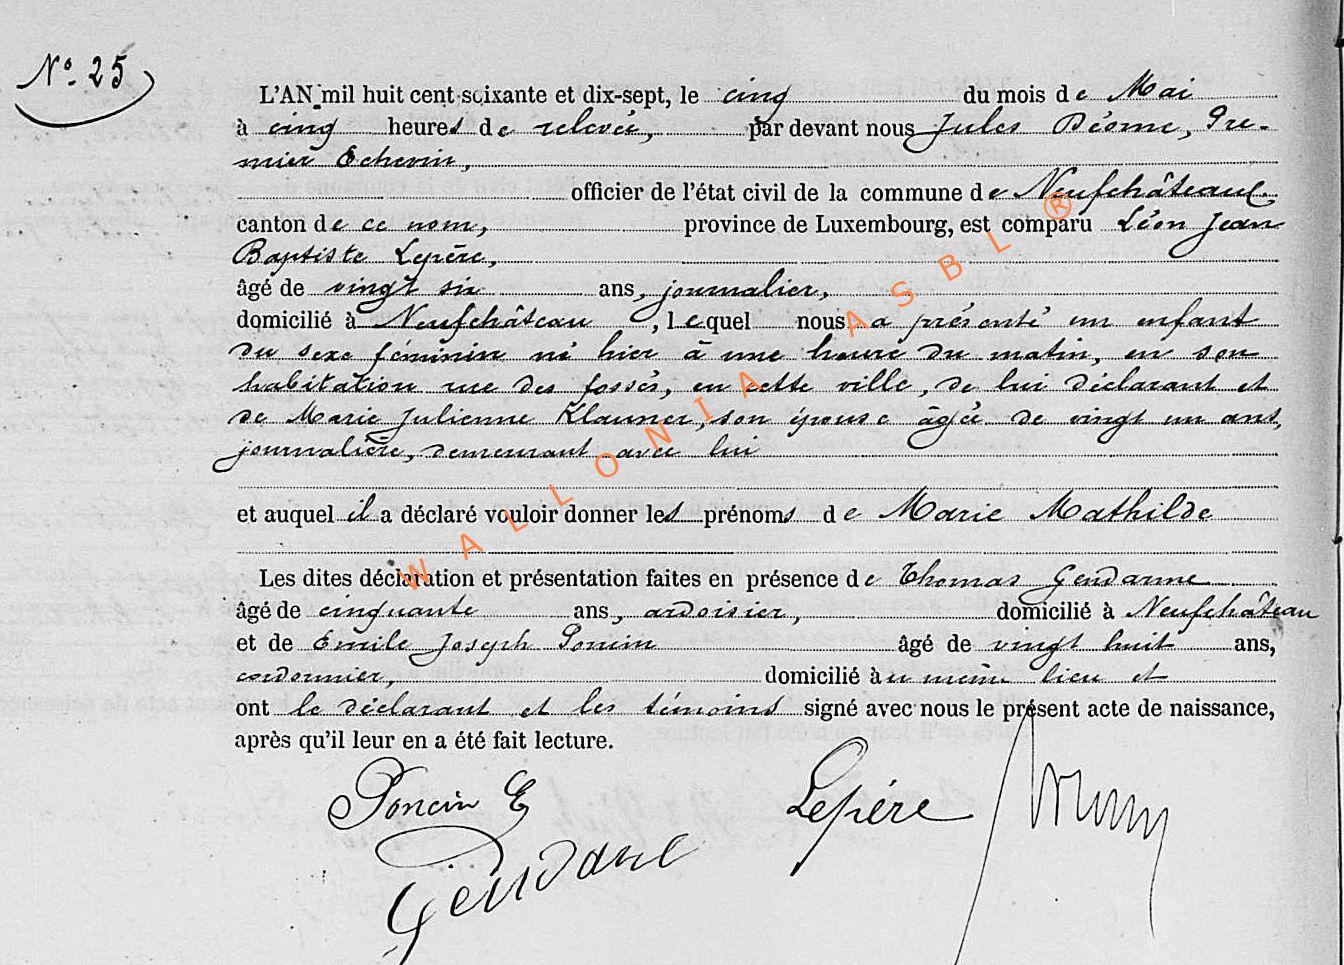 N° 25
L'AN mil huit cent soixante et dix-sept, le cinq du mois de Mai
à cinq heures de relevée, par devant nous Jules Déome, Pre-
mier Echevin,
officier de l'état civil de la commune de Neufchâteau
canton de ce nom, province de Luxembourg, est comparu Léon Jean
Baptiste Lepère,
âgé de vingt six ans, journalier,
domicilié à Neufchâteau, lequel nous a présenté un enfant
du sexe féminin né hier à une heure du matin, en son
habitation rue des fossés, en cette ville, de lui déclarant et
de Marie Julienne Klauner, son épouse âgée de vingt un ans,
journalière, demeurant avec lui
et auquel il a déclaré vouloir donner les prénoms de Marie Mathilde
Les dites déclaration et présentation faites en présence de Thomas Gendarme
âgé de cinquante ans, ardoisier, domicilié à Neufchâteau
et de Emile Joseph Poncin âgé de vingt huit ans,
cordonnier, domicilié au même lieu et
ont le déclarant et les témoins signé avec nous le présent acte de naissance,
après qu'il leur en a été fait lecture.
Poncin E Lepère
WALLONIA ASBL ®